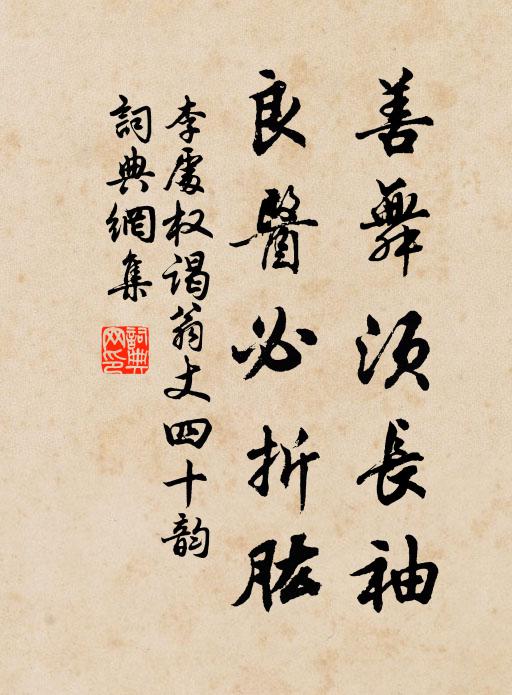 善舞須長袖
良醫必折肱
李處权謁翁丈四十韵
詞典網集
詞典网印